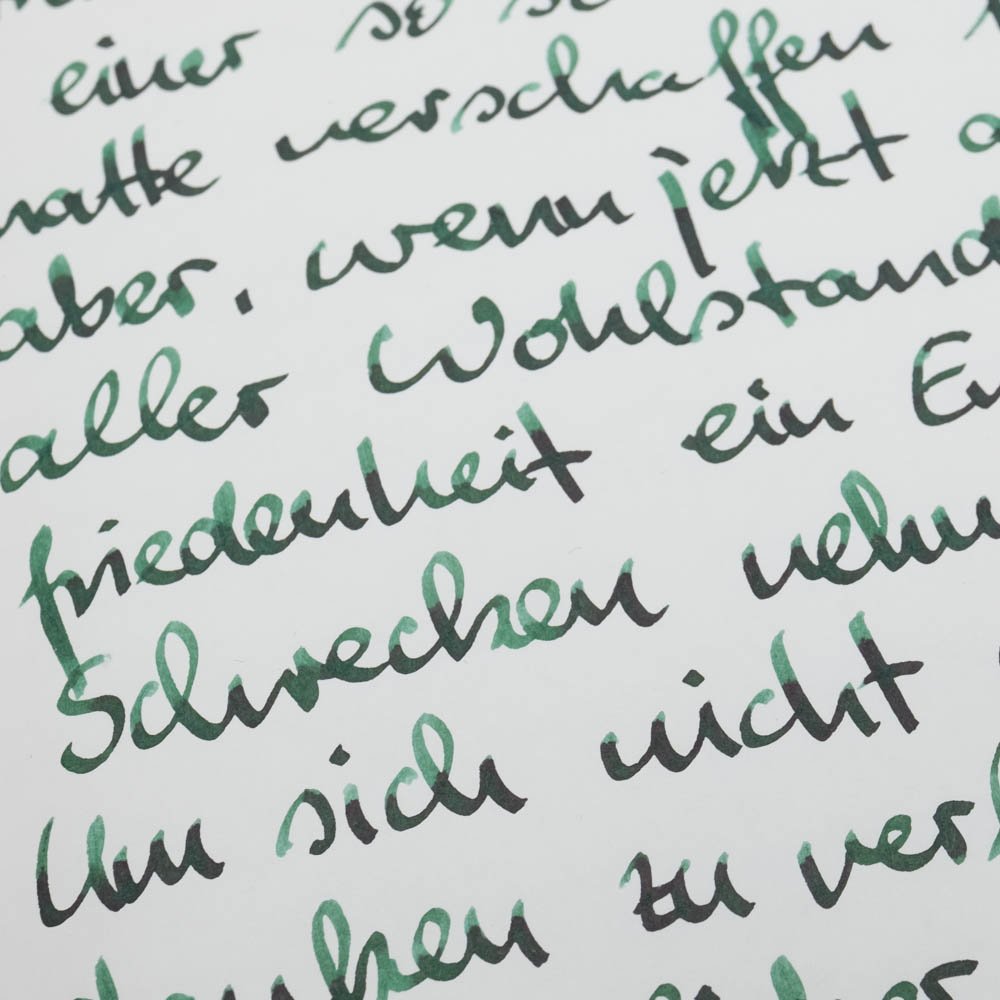 einer so
hatte verschaffen
aber, wenn jetzt
aller Wohlstand
friedenheit ein En
Schrecken nehm
Um sich nicht
danken zu verl